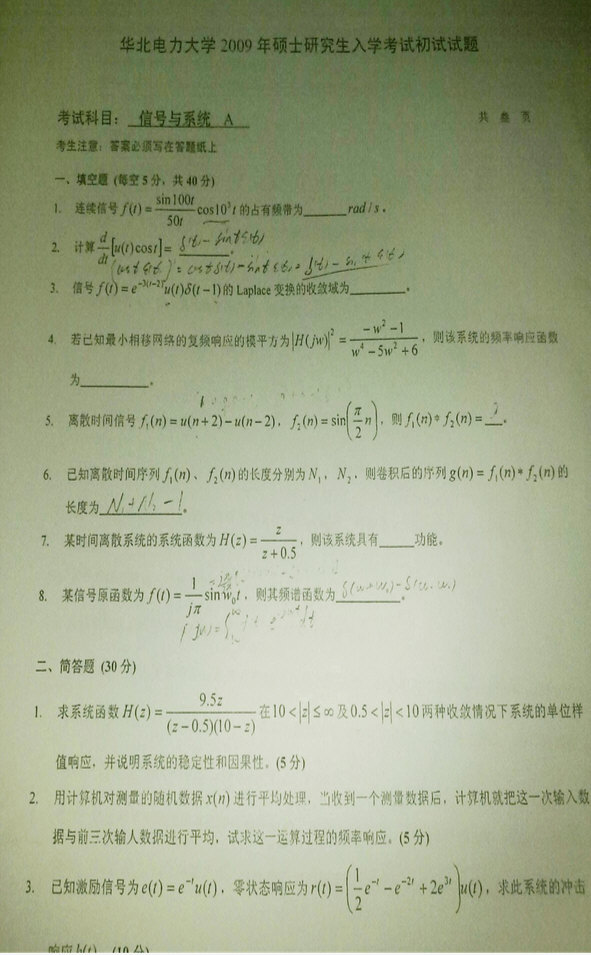 华北电力大学 2009 年硕士研究生入学考试初试试题
考试科目： 信号与系统 A 共 叁 页
考生注意：答案必须写在答题纸上
一、填空题 (每空 5 分，共 40 分)
1. 连续信号 f(t) = sin100t/50t cos10³t 的占有频带为______rad/s。
2. 计算 d/dt[u(t)cost] = δ(t) - sintε(t)。
(cost ε(t))' = costδ(t) - sint ε(t) = δ(t) - sint ε(t)
3. 信号 f(t) = e^{-3(t-2)}u(t)δ(t-1) 的 Laplace 变换的收敛域为______。
4. 若已知最小相移网络的复频响应的模平方为 |H(jw)|² = (-w²-1)/(w⁴-5w²+6)，则该系统的频率响应函数
为______。
5. 离散时间信号 f₁(n) = u(n+2) - u(n-2)，f₂(n) = sin(π/2 n)，则 f₁(n)*f₂(n) = __。
6. 已知离散时间序列 f₁(n)、f₂(n) 的长度分别为 N₁，N₂，则卷积后的序列 g(n) = f₁(n)*f₂(n) 的
长度为 N₁+N₂-1。
7. 某时间离散系统的系统函数为 H(z) = z/(z+0.5)，则该系统具有____功能。
8. 某信号原函数为 f(t) = 1/jπ sin w₀t，则其频谱函数为 δ(w+w₀)-δ(w-w₀)。
二、简答题 (30 分)
1. 求系统函数 H(z) = 9.5z/((z-0.5)(10-z)) 在 10<|z|≤∞ 及 0.5<|z|<10 两种收敛情况下系统的单位样
值响应，并说明系统的稳定性和因果性。(5 分)
2. 用计算机对测量的随机数据 x(n) 进行平均处理，当收到一个测量数据后，计算机就把这一次输入数
据与前三次输人数据进行平均，试求这一运算过程的频率响应。(5 分)
3. 已知激励信号为 e(t) = e^{-t}u(t)，零状态响应为 r(t) = (1/2 e^{-t} - e^{-2t} + 2e^{3t})u(t)，求此系统的冲击
响应 h(t)。(10 分)